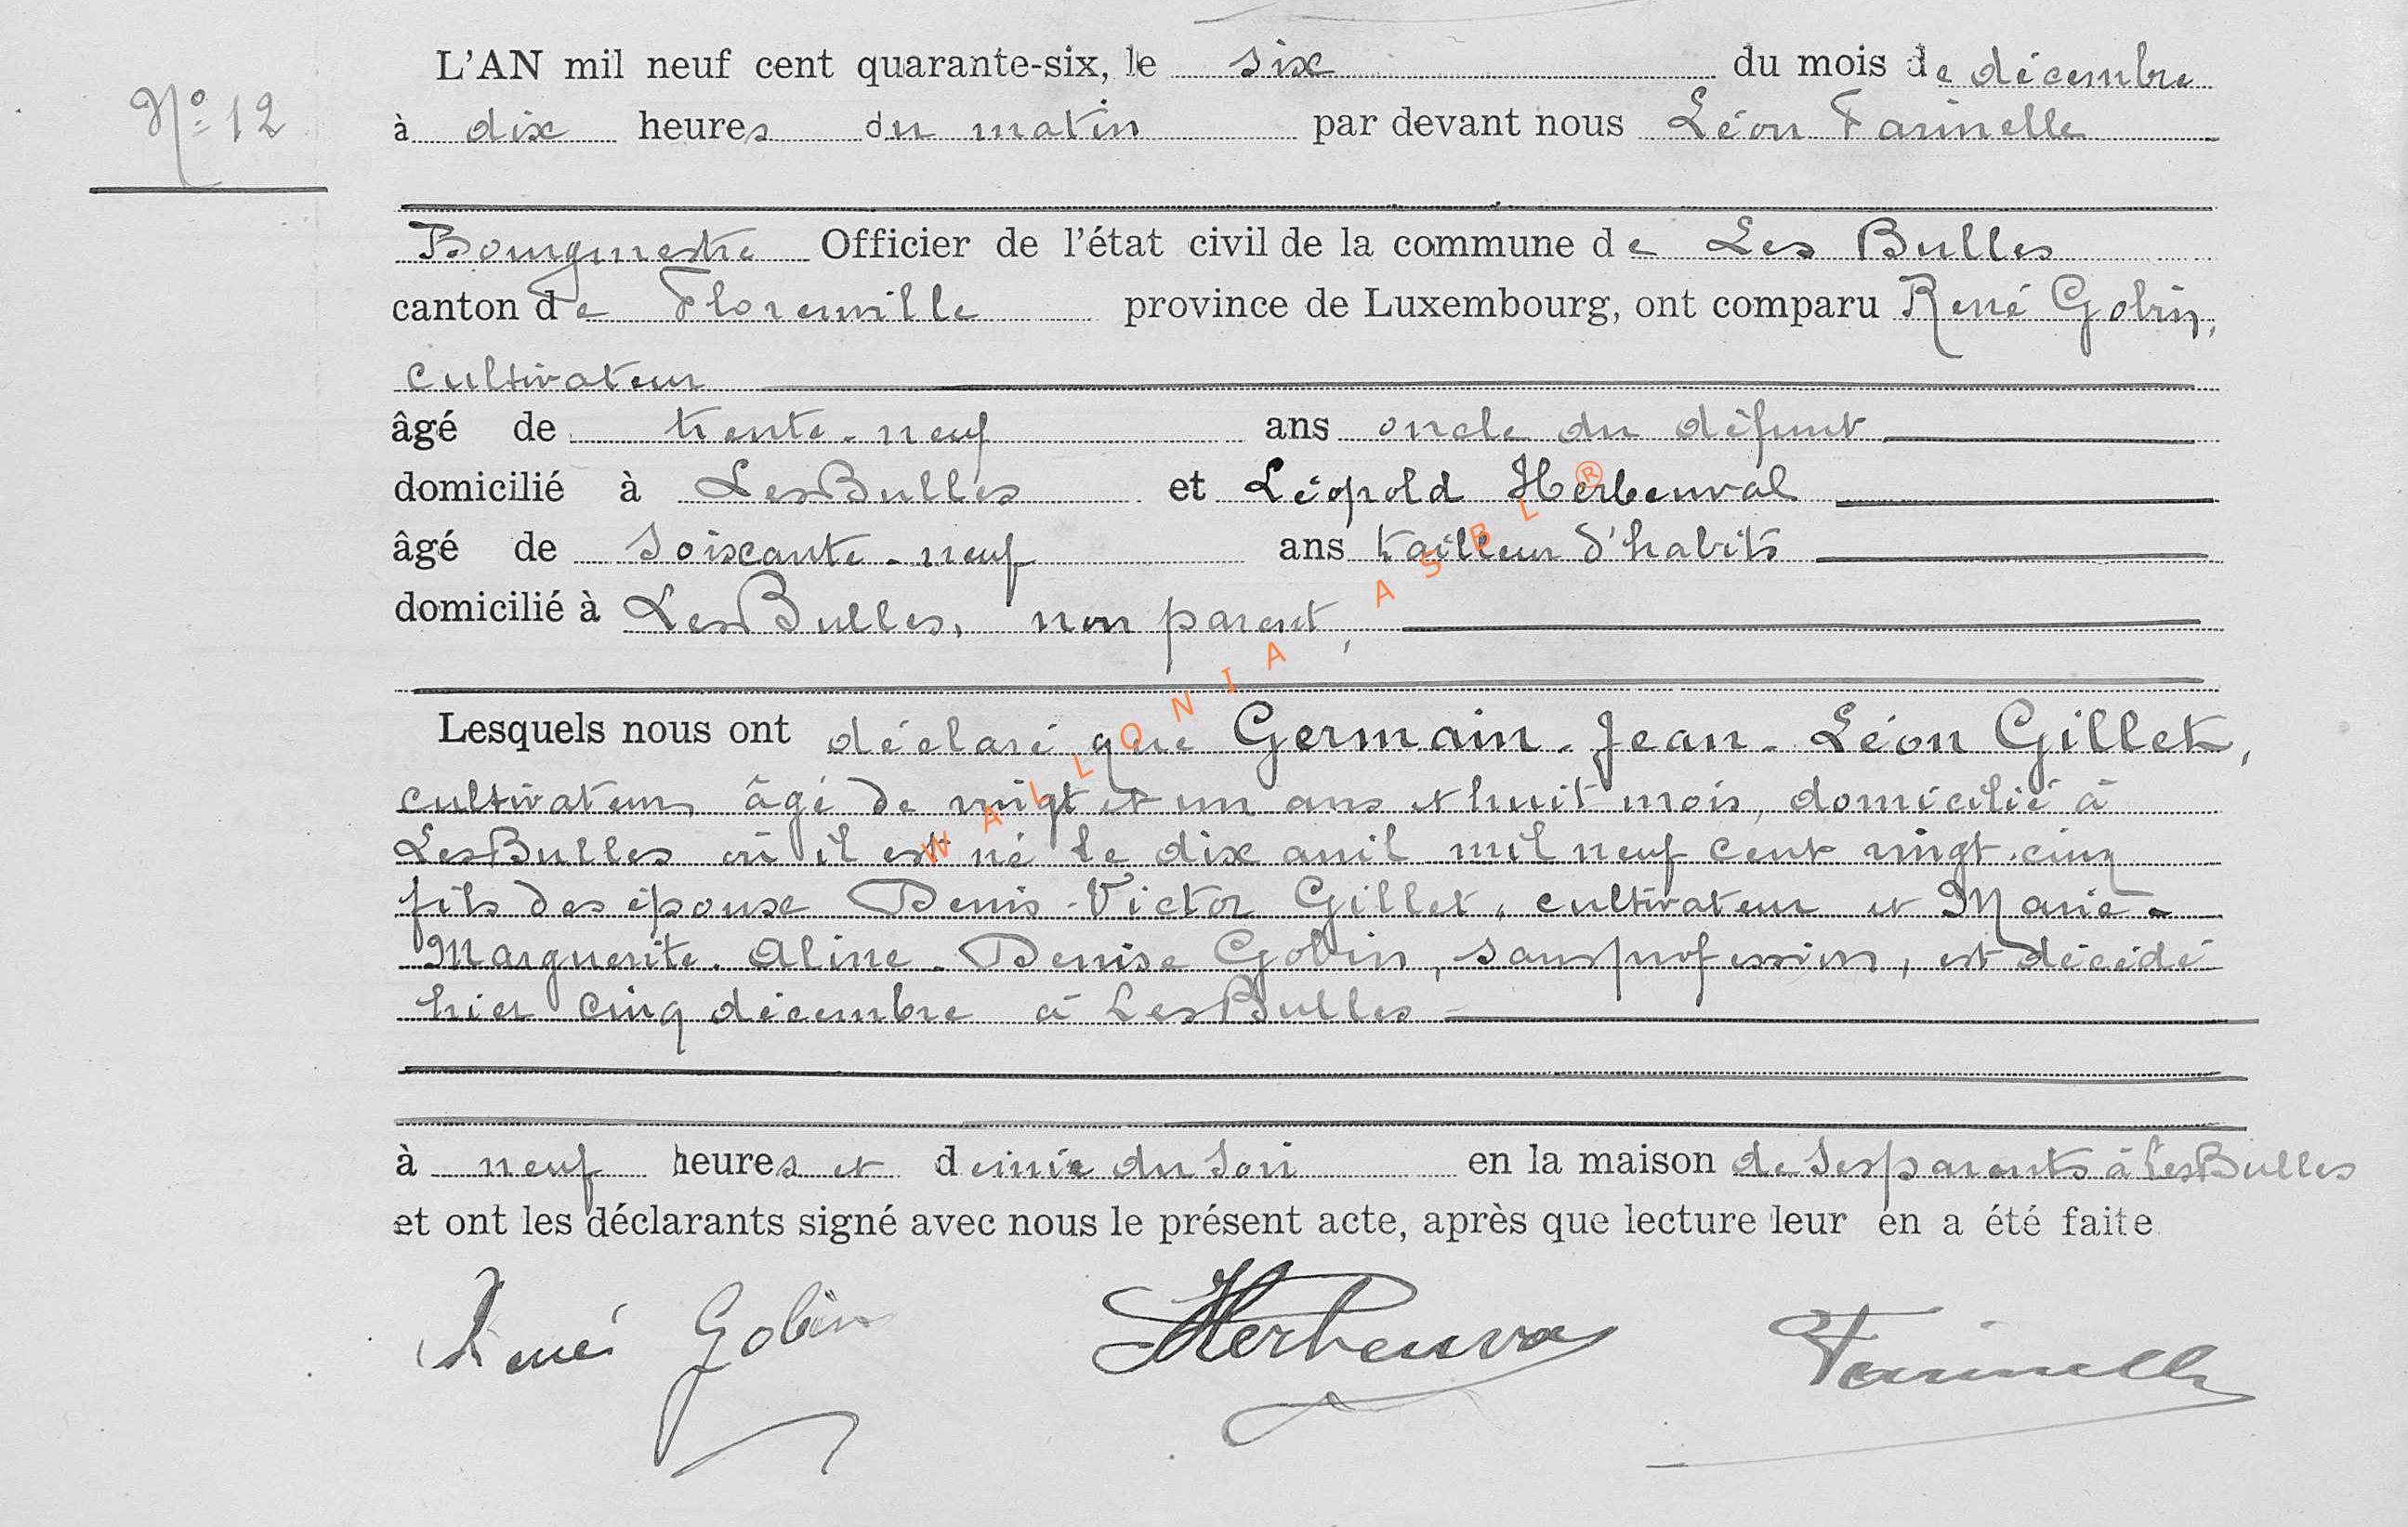 N° 12
L'AN mil neuf cent quarante-six, le six du mois de décembre
à dix heures du matin par devant nous Léon Farinelle
Bourgmestre Officier de l'état civil de la commune de Les Bulles
canton de Florenville province de Luxembourg, ont comparu René Gobin,
cultivateur
âgé de trente-neuf ans oncle du défunt
domicilié à Les Bulles et Léopold Herbeuval
âgé de soixante-neuf ans tailleur d'habits
domicilié à Les Bulles, non parent,
Lesquels nous ont déclaré que Germain-Jean-Léon Gillet,
cultivateur, âgé de vingt et un ans et huit mois, domicilié à
Les Bulles où il est né le dix avril mil neuf cent vingt-cinq
fils des époux Denis-Victor Gillet, cultivateur et Marie-
Marguerite-Aline-Denise Gobin, sans profession, est décédé
hier cinq décembre à Les Bulles
à neuf heures et demie du soir en la maison de ses parents à Les Bulles
et ont les déclarants signé avec nous le présent acte, après que lecture leur en a été faite
René Gobin Herbeuval Farinelle
WALLONIA ASBL ®